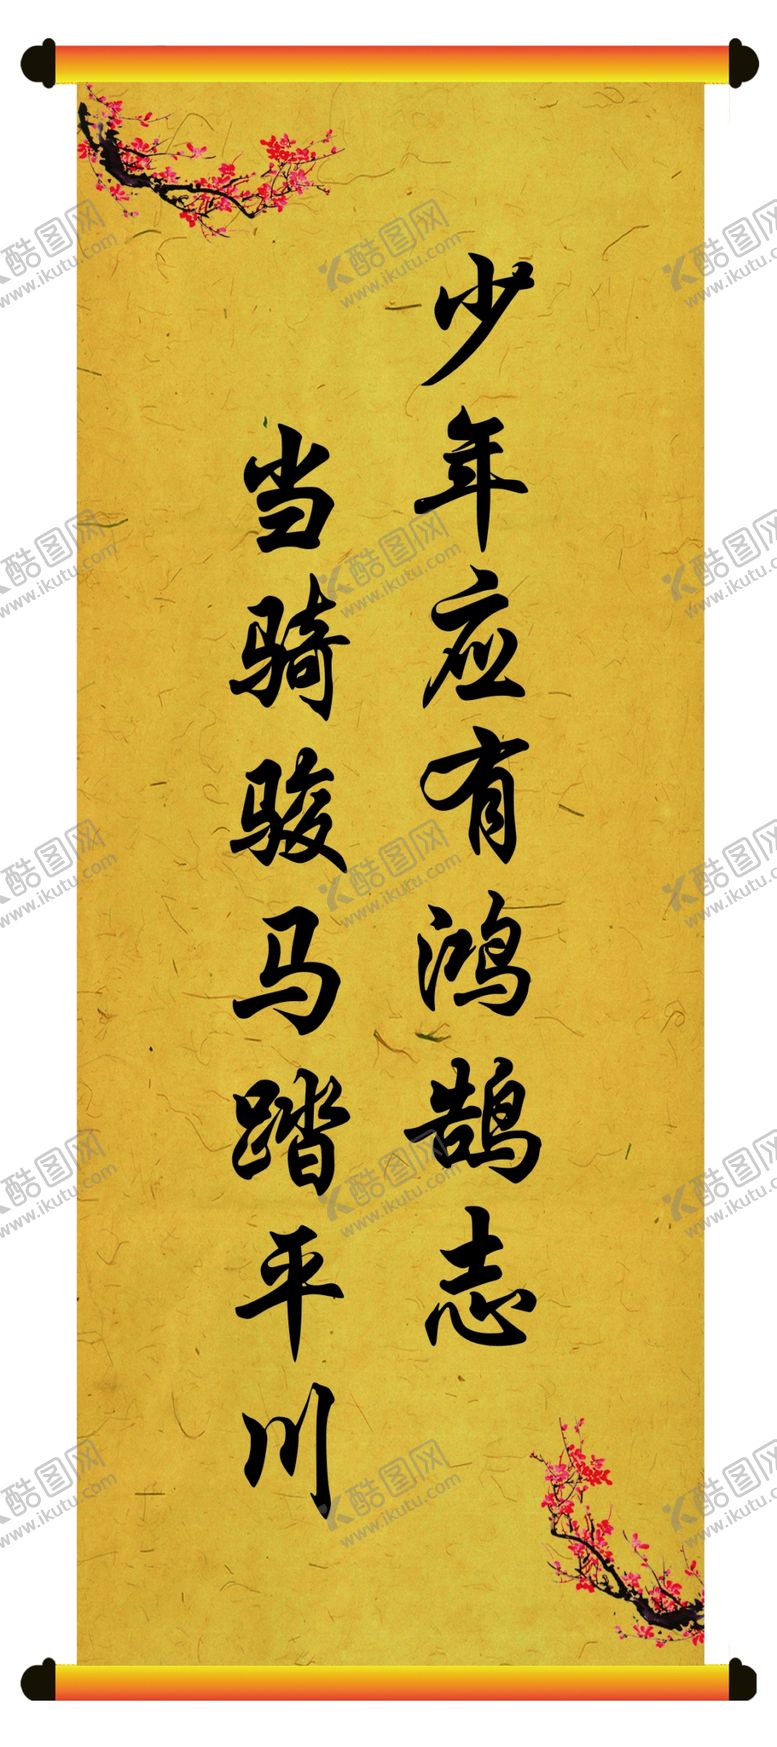 少年应有鸿鹄志
当骑骏马踏平川
酷图网
www.ikutu.com